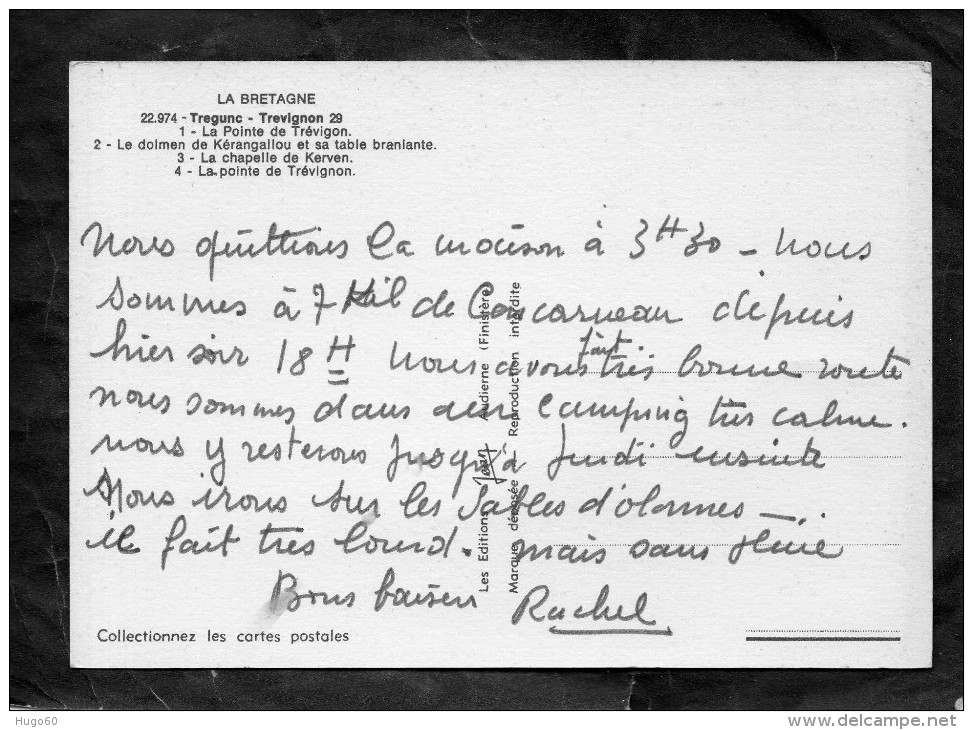 LA BRETAGNE
22.974 - Tregunc - Trevignon 29
1 - La Pointe de Trévigon.
2 - Le dolmen de Kérangallou et sa table branlante.
3 - La chapelle de Kerven.
4 - La pointe de Trévignon.
Nous quittions la maison à 3H30 - nous
sommes à 7 Kil de Concarneau depuis
hier soir 18 H Nous avons fait très bonne route
nous sommes dans un camping très calme.
nous y resterons jusqu'à Jeudi ensuite
Nous irons sur les Sables d'olonnes -
il fait très lourd. mais sans pluie
Bons baisers Rachel
Les Editions Jean Audierne (Finistère)
Marque déposée - Reproduction interdite
Collectionnez les cartes postales
Hugo60
www.delcampe.net